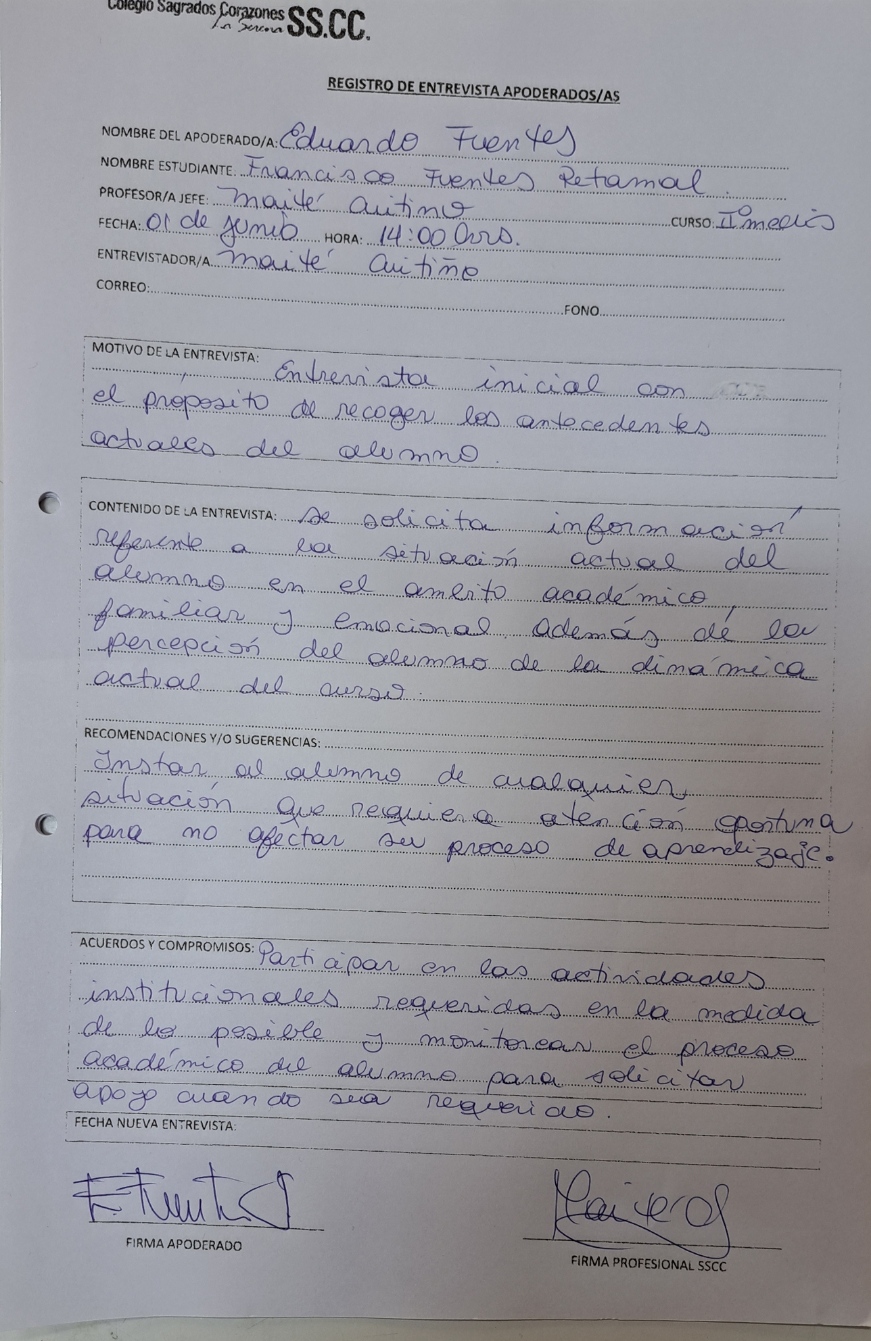 Colegio Sagrados Corazones
La Serena SS.CC.
REGISTRO DE ENTREVISTA APODERADOS/AS
NOMBRE DEL APODERADO/A: Eduardo Fuentes
NOMBRE ESTUDIANTE: Francisco Fuentes Retamal.
PROFESOR/A JEFE: Maité Autiño CURSO: IIº medio
FECHA: 01 de junio HORA: 14:00 hrs.
ENTREVISTADOR/A Maité Autiño
CORREO: FONO
MOTIVO DE LA ENTREVISTA: Entrevista inicial con
el propósito de recoger los antecedentes
actuales del alumno.
CONTENIDO DE LA ENTREVISTA: Se solicita información
referente a la situación actual del
alumno en el ámbito académico,
familiar y emocional, además de la
percepción del alumno de la dinámica
actual del curso.
RECOMENDACIONES Y/O SUGERENCIAS:
Instar al alumno de cualquier
situación que requiera atención oportuna
para no afectar su proceso de aprendizaje.
ACUERDOS Y COMPROMISOS: Participar en las actividades
institucionales requeridas en la medida
de lo posible y monitorear el proceso
académico del alumno para solicitar
apoyo cuando sea requerido.
FECHA NUEVA ENTREVISTA:
FIRMA APODERADO
FIRMA PROFESIONAL SSCC